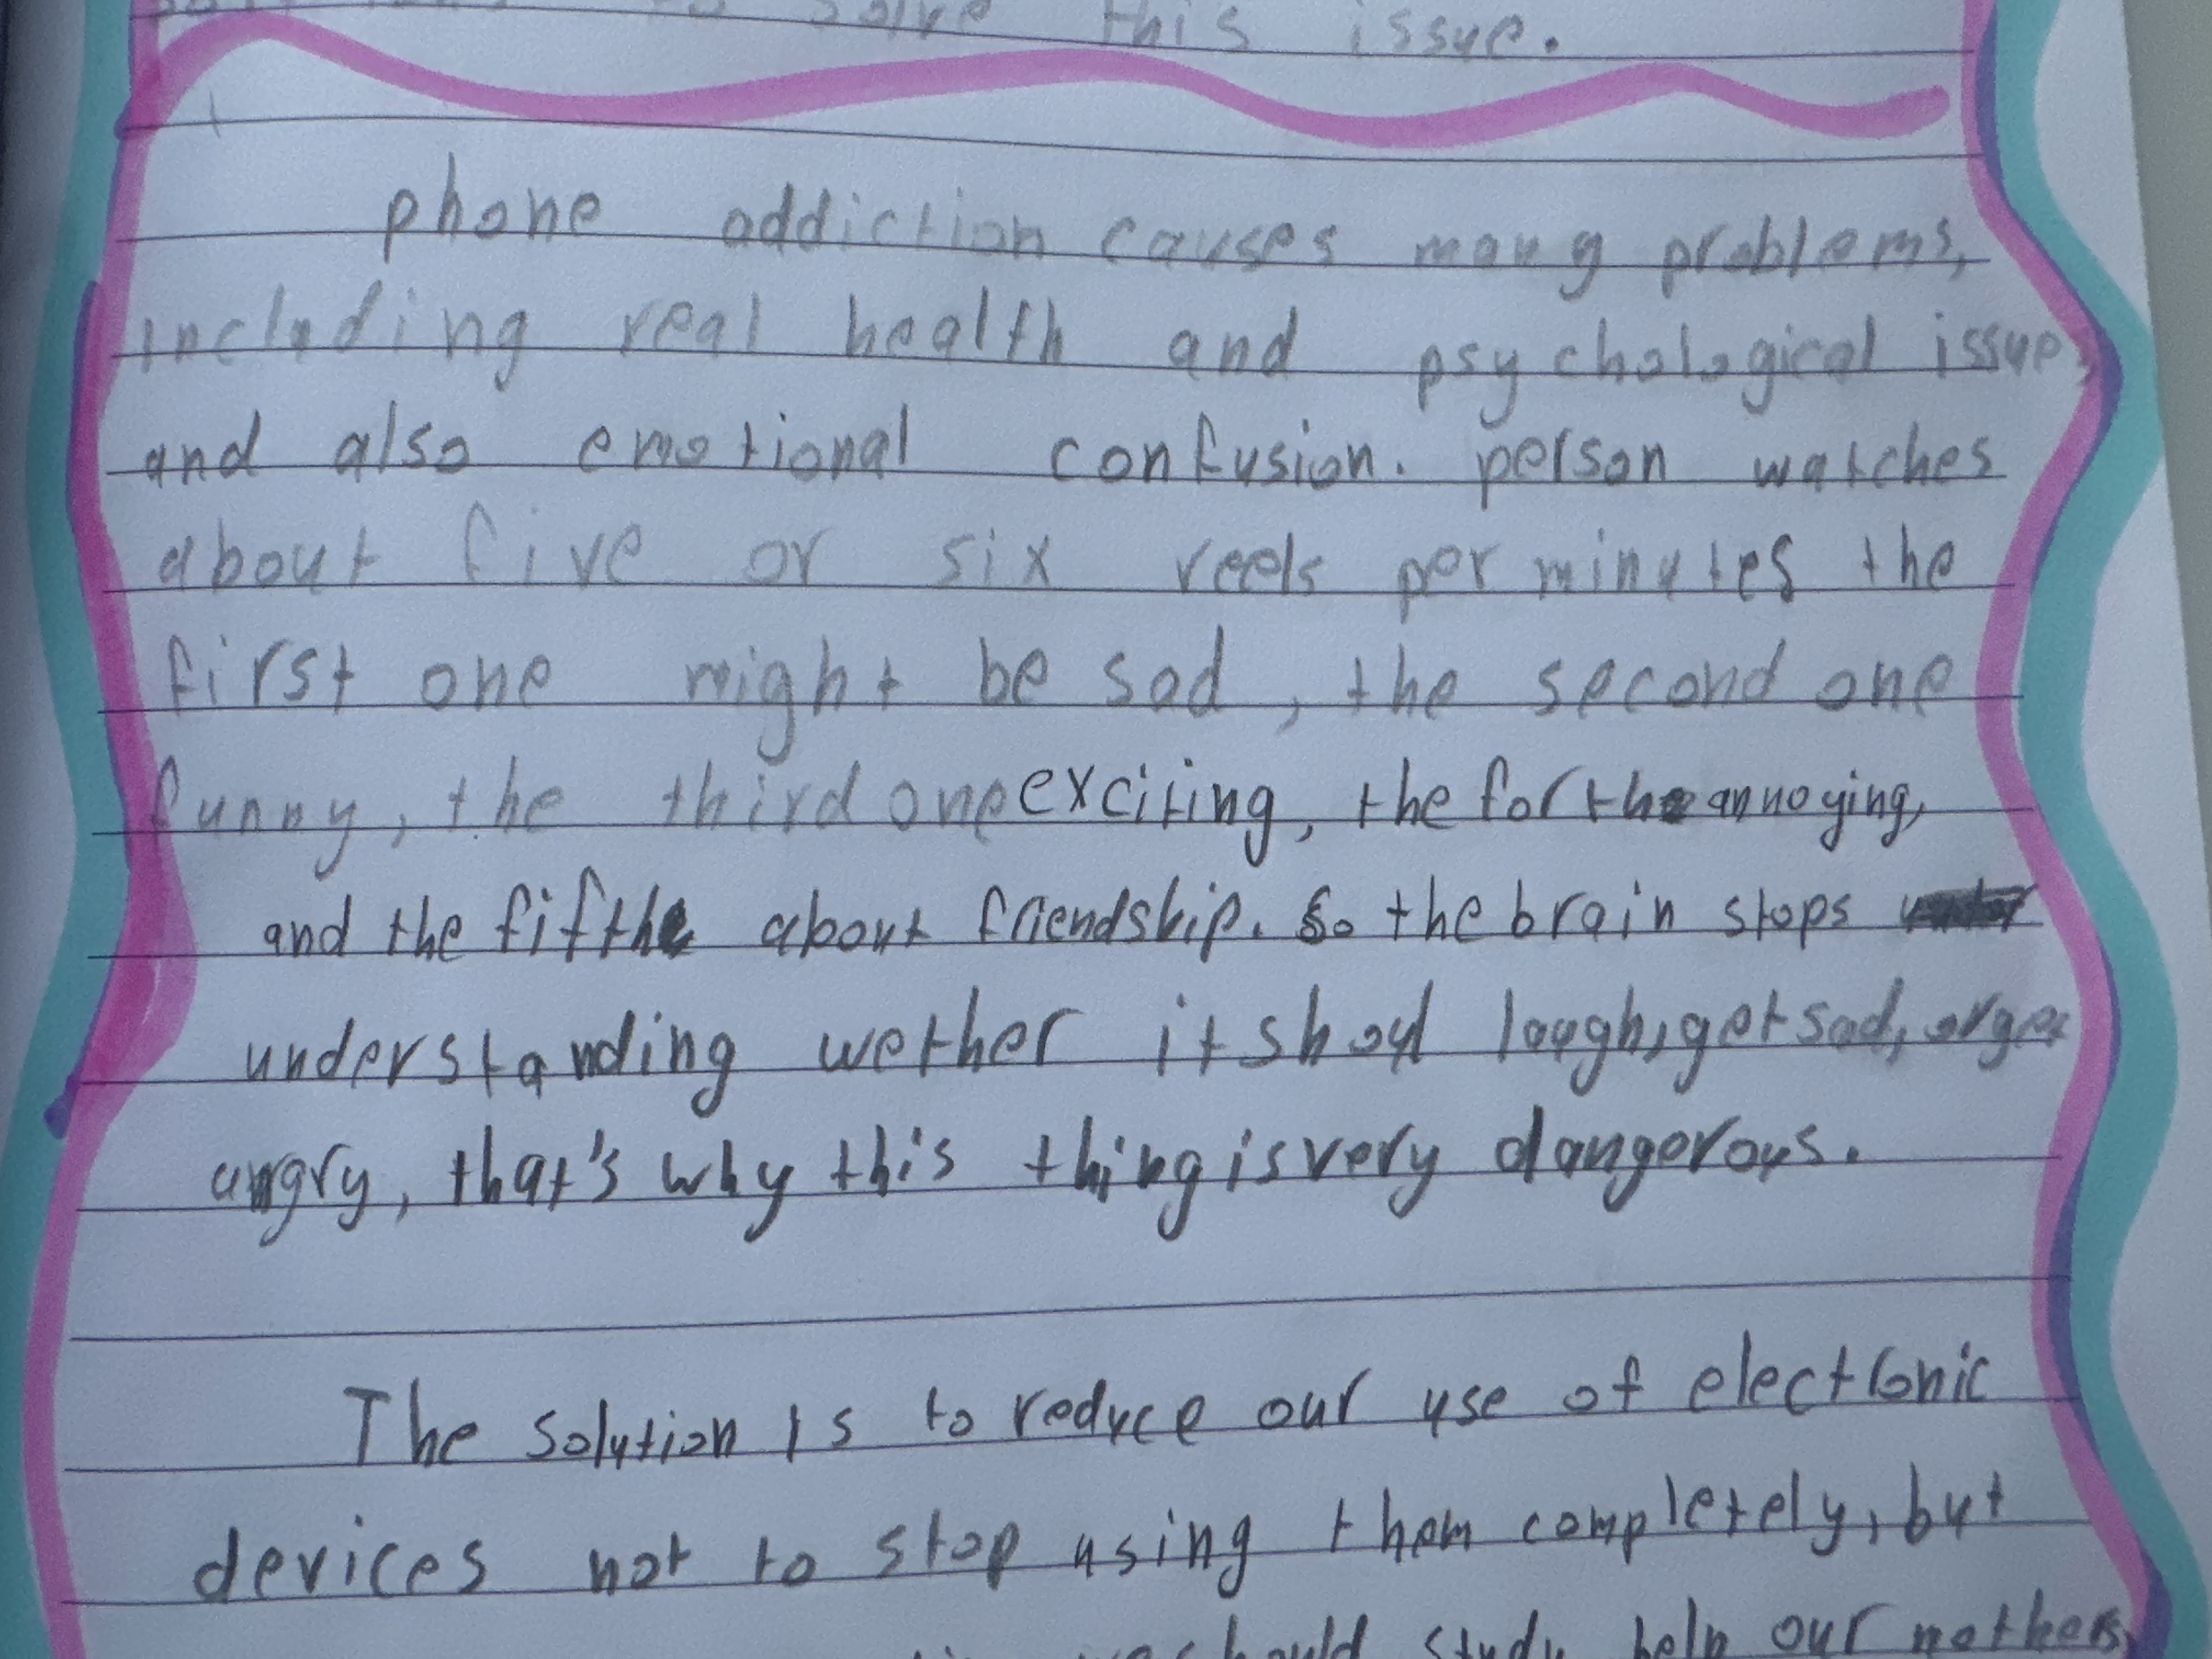 solve this issue.
phone addiction causes many problems,
including real health and psychological issue,
and also emotional confusion. person watches
about five or six reels per minutes the
first one might be sad, the second one
funny, the third one exciting, the forth annoying,
and the fifth about friendship. So the brain stops
understanding wether it shoud laugh, get sad, or get
angry, that's why this thing is very dangerous.
The solution is to reduce our use of electronic
devices not to stop using them completely, but
should study help our mothers,